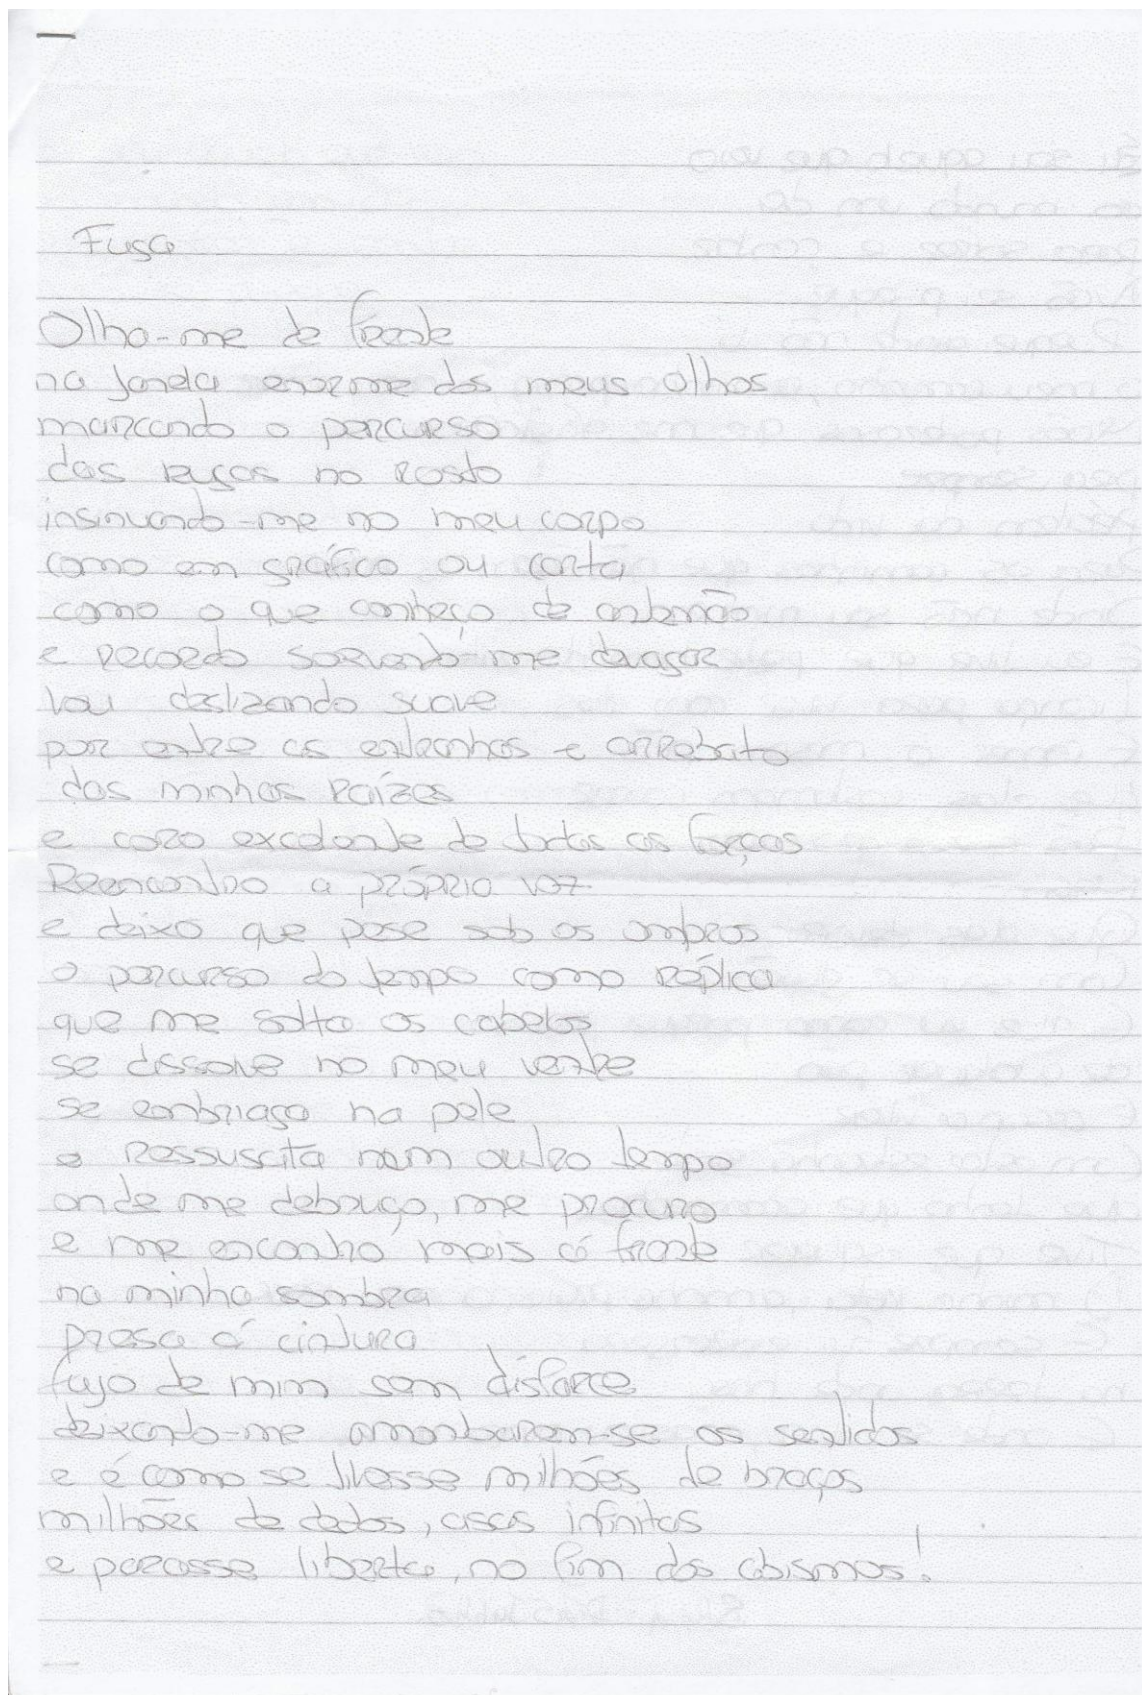 Fuga
Olho-me de frente
na janela enorme dos meus olhos
marcando o percurso
das rugas no rosto
insinuando-me no meu corpo
como em gráfico ou carta
como o que conheço de antemão
e recordo sorvendo-me devagar
vou deslizando suave
por entre as entranhas e arrebato
das minhas raízes
e coro excedente de todas as forças
Reencontro a própria voz
e deixo que pese sob os ombros
o percurso do tempo como réplica
que me solta os cabelos
se dissolve no meu ventre
se embriaga na pele
e ressuscita num outro tempo
onde me debruço, me procuro
e me encontro mais á frente
na minha sombra
presa á cintura
fujo de mim sem disfarce
deixando-me amontoarem-se os sentidos
e é como se tivesse milhões de braços
milhões de dedos, asas infinitas
e parasse liberta, no fim dos abismos!